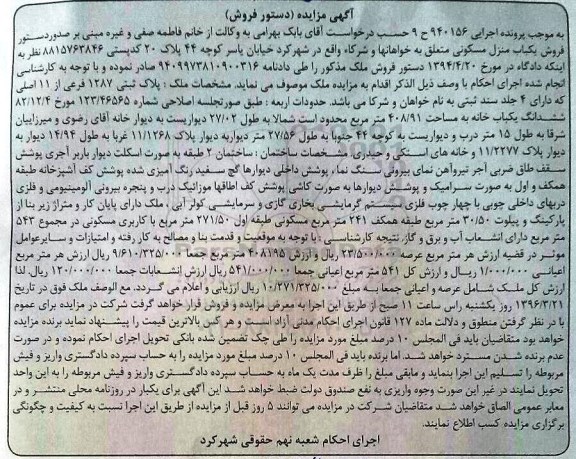 آگهی مزایده (دستور فروش)
به موجب پرونده اجرایی ۹۴۰۱۵۶ ح ۹ حسب درخواست آقای بابک بهرامی به وکالت از خانم فاطمه صفی و غیره مبنی بر صدور دستور
فروش یکباب منزل مسکونی متعلق به خواهانها و شرکاء واقع در شهرکرد خیابان یاسر کوچه ۴۴ پلاک ۲۰ کدپستی ۸۸۱۵۷۶۳۸۴۶ نظر به
اینکه دادگاه در مورخ ۱۳۹۴/۴/۲۰ دستور فروش ملک مذکور را طی دادنامه ۹۴۰۹۹۷۳۸۱۰۹۰۰۳۱۶ صادر نموده و با توجه به کارشناسی
انجام شده اجرای احکام با وصف ذیل الذکر اقدام به مزایده ملک موصوف می نماید. مشخصات ملک : پلاک ثبتی ۱۲۸۷ فرعی از ۱۱ اصلی
که دارای ۴ جلد سند ثبتی به نام خواهان و شرکا می باشد. حدودات اربعه : طبق صورتجلسه اصلاحی شماره ۱۲۳/۴۶۵۶۵ مورخ ۸۲/۱۲/۴
ششدانگ یکباب خانه به مساحت ۴۰۸/۹۱ متر مربع محدود است شمالا به طول ۲۷/۰۲ دیواریست به دیوار خانه آقای رضوی و میرزاییان
شرقا به طول ۱۵ متر درب و دیواریست به کوچه ۴۴ جنوبا به طول ۲۷/۵۶ متر دیواربه دیوار پلاک ۱۱/۱۲۶۸ غربا به طول ۱۴/۹۴ دیوار به
دیوار پلاک ۱۱/۲۲۷۷ و خانه های استکی و حیدری. مشخصات ساختمان : ساختمان ۲ طبقه به صورت اسکلت دیوار باربر آجری پوشش
سقف طاق ضربی آجر تیرآهن نمای بیرونی سنگ نما، پوشش داخلی دیوارها گچ سفید رنگ آمیزی شده پوشش کف آشپزخانه طبقه
همکف و اول به صورت سرامیک و پوشش دیوارها به صورت کاشی پوشش کف اطاقها موزائیک درب و پنجره بیرونی آلومینیومی و فلزی
دربهای داخلی چوبی با چهار چوب فلزی سیستم گرمایشی بخاری گازی و سرمایشی کولر آبی ، ملک دارای پایان کار و متراژ زیر بنا از
پارکینگ و پیلوت ۳۰/۵۰ متر مربع طبقه همکف ۲۴۱ مترمربع مسکونی طبقه اول ۲۷۱/۵۰ متر مربع با کاربری مسکونی در مجموع ۵۴۳
متر مربع دارای انشعاب آب و برق و گاز. نتیجه کارشناسی : با توجه به موقعیت و قدمت بنا و مصالح به کار رفته و امتیازات و سایرعوامل
موثر در قضیه ارزش هر متر مربع عرصه ۲۳/۵۰۰/۰۰۰ ریال و ارزش ۴۰۸/۹۵ متر مربع جمعا ۹/۶۱۰/۳۲۵/۰۰۰ ریال ارزش هر متر مربع
اعیانی ۱/۰۰۰/۰۰۰ ریال و ارزش کل ۵۴۱ متر مربع اعیانی جمعا ۵۴۱/۰۰۰/۰۰۰ ریال ارزش انشعابات جمعا ۱۲۰/۰۰۰/۰۰۰ ریال. لذا
ارزش کل ملک شامل عرصه و اعیانی جمعا به مبلغ ۱۰/۳۷۱/۳۲۵/۰۰۰ ریال ارزیابی و اعلام می گردد. مع الوصف ملک فوق در تاریخ
۱۳۹۶/۳/۲۱ روز یکشنبه راس ساعت ۱۱ صبح از طریق این اجرا به معرض مزایده و فروش قرار خواهد گرفت شرکت در مزایده برای عموم
با در نظر گرفتن منطوق و دلالت ماده ۱۲۷ قانون اجرای احکام مدنی آزاد است و هر کس بالاترین قیمت را پیشنهاد نماید برنده مزایده
خواهد بود متقاضیان باید فی المجلس ۱۰ درصد مبلغ مورد مزایده را طی چک تضمین شده بانکی تحویل اجرای احکام نموده و در صورت
عدم برنده شدن مسترد خواهد شد. اما برنده باید فی المجلس ۱۰ درصد مبلغ مورد مزایده را به حساب سپرده دادگستری واریز و فیش
مربوطه را تسلیم این اجرا بنماید و مابقی مبلغ را ظرف مدت یک ماه به حساب سپرده دادگستری واریز و فیش مربوطه را به این واحد
تحویل نمایند در غیر این صورت وجوه واریزی به نفع صندوق دولت ضبط خواهد شد این آگهی برای یکبار در روزنامه محلی منتشر و در
معابر عمومی الصاق خواهد شد متقاضیان شرکت در مزایده می توانند ۵ روز قبل از مزایده از طریق این اجرا نسبت به کیفیت و چگونگی
برگزاری مزایده کسب اطلاع نمایند.
اجرای احکام شعبه نهم حقوقی شهرکرد